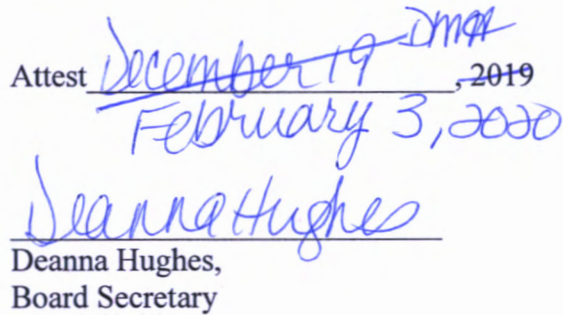 DMH
Attest December 19, 2019
February 3, 2020
Deanna Hughes
Deanna Hughes,
Board Secretary